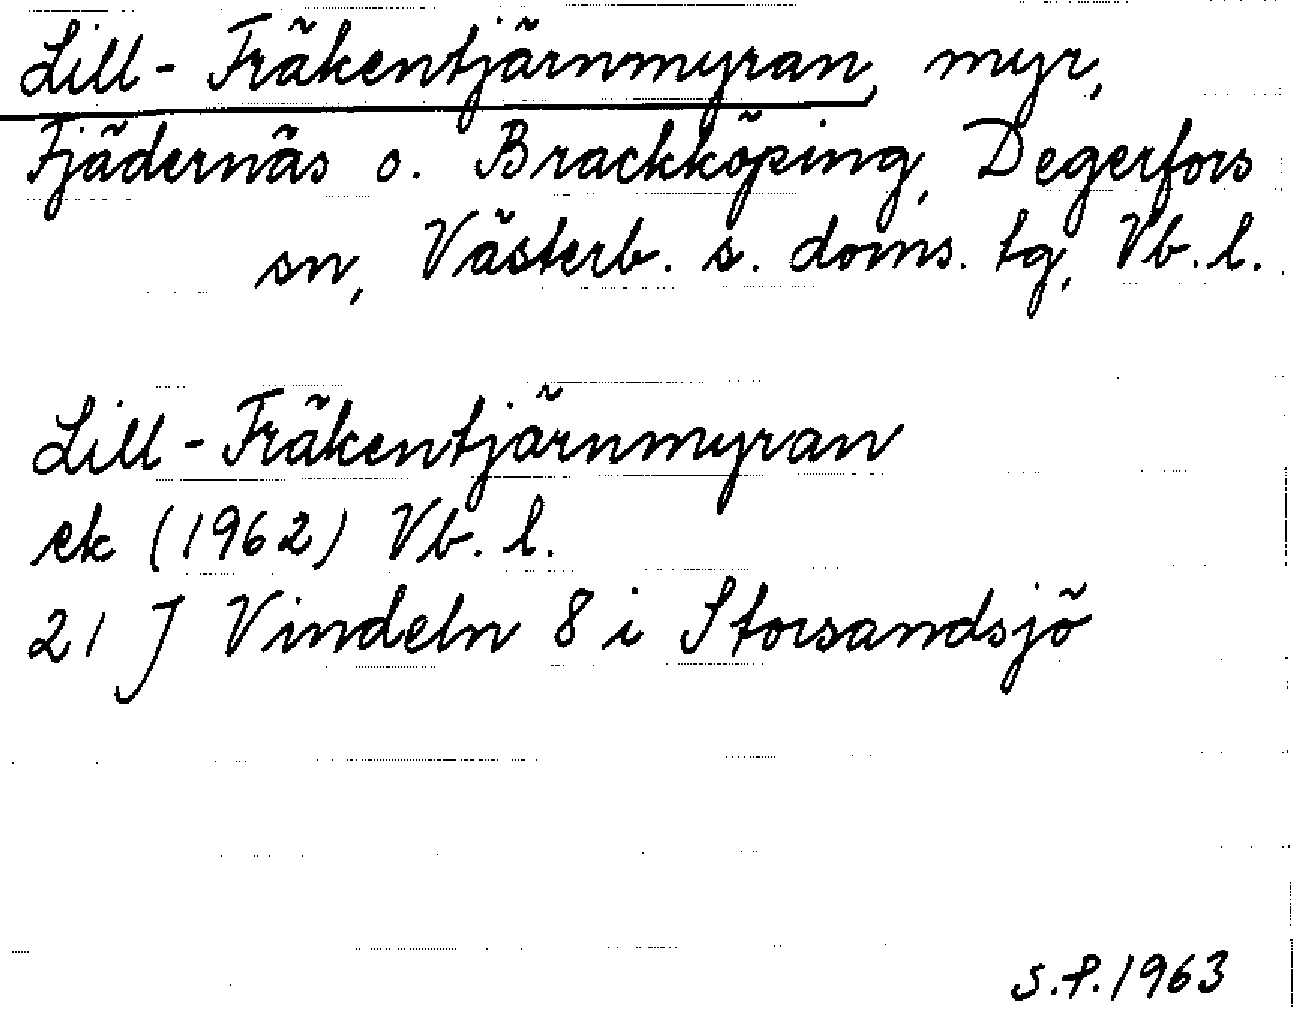 Lill-Fräkentjärnmyran, myr,
Fjädernäs o. Brackköping, Degerfors
sn, Västerb. s. doms. tg, Vb. l.
Lill-Fräkentjärnmyran
ek (1962) Vb. l.
21 J Vindeln 8 i Storsandsjö
S.P. 1963